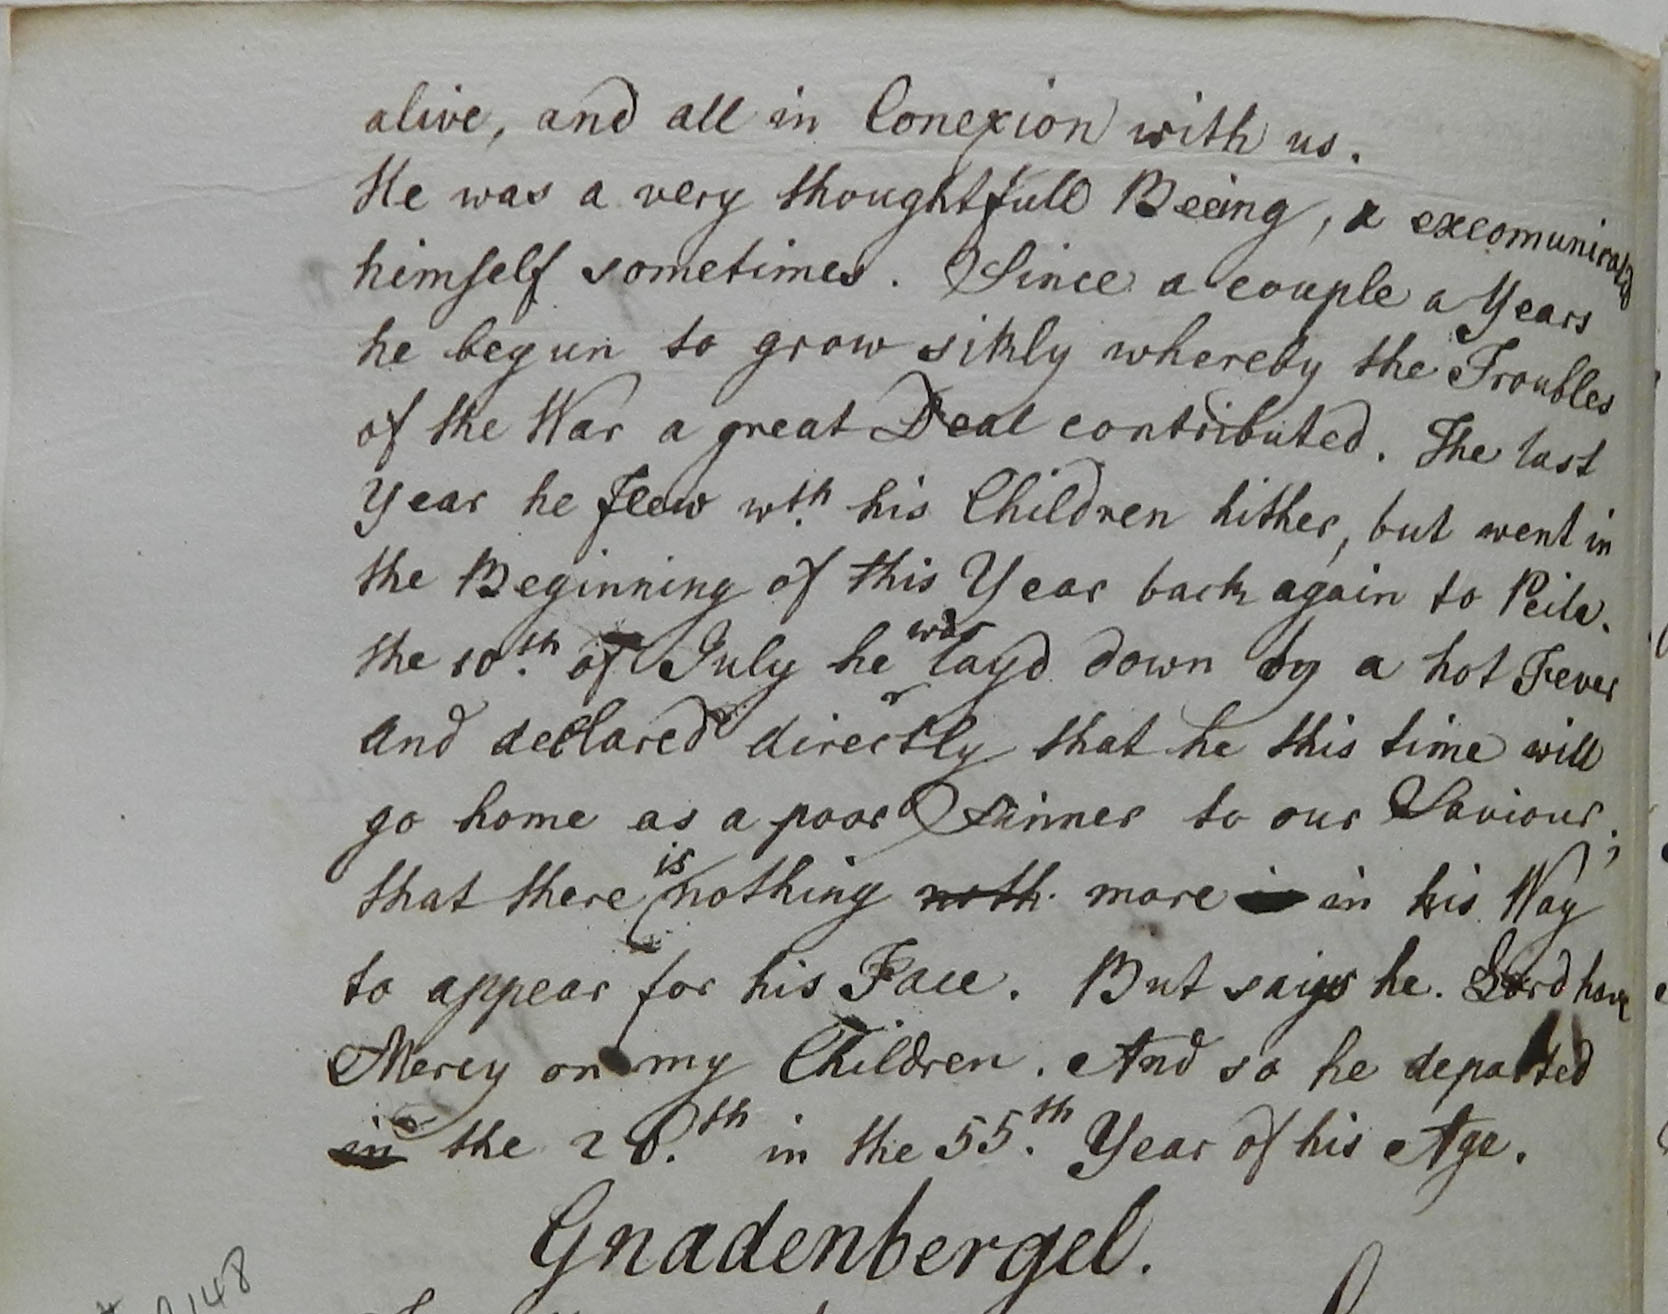 alive, and all in Conexion with us.
He was a very thoughtfull Beeing, & excomunicated
himself sometimes. Since a couple a Years
he begun to grow sikly whereby the Troubles
of the War a great Deal contributed. The last
Year he flew wth. his Children hither, but went in
the Beginning of this Year back again to Peila.
the 10.th of July he was layd down by a hot Fever
and declared directly that he this time will
go home as a poor Sinner to our Saviour;
that there is nothing noth. more in his Way
to appear for his Face. But says he. Lord have
Mercy on my Children. And so he departed
in the 20.th in the 55.th Year of his Age.
Gnadenbergel.
148